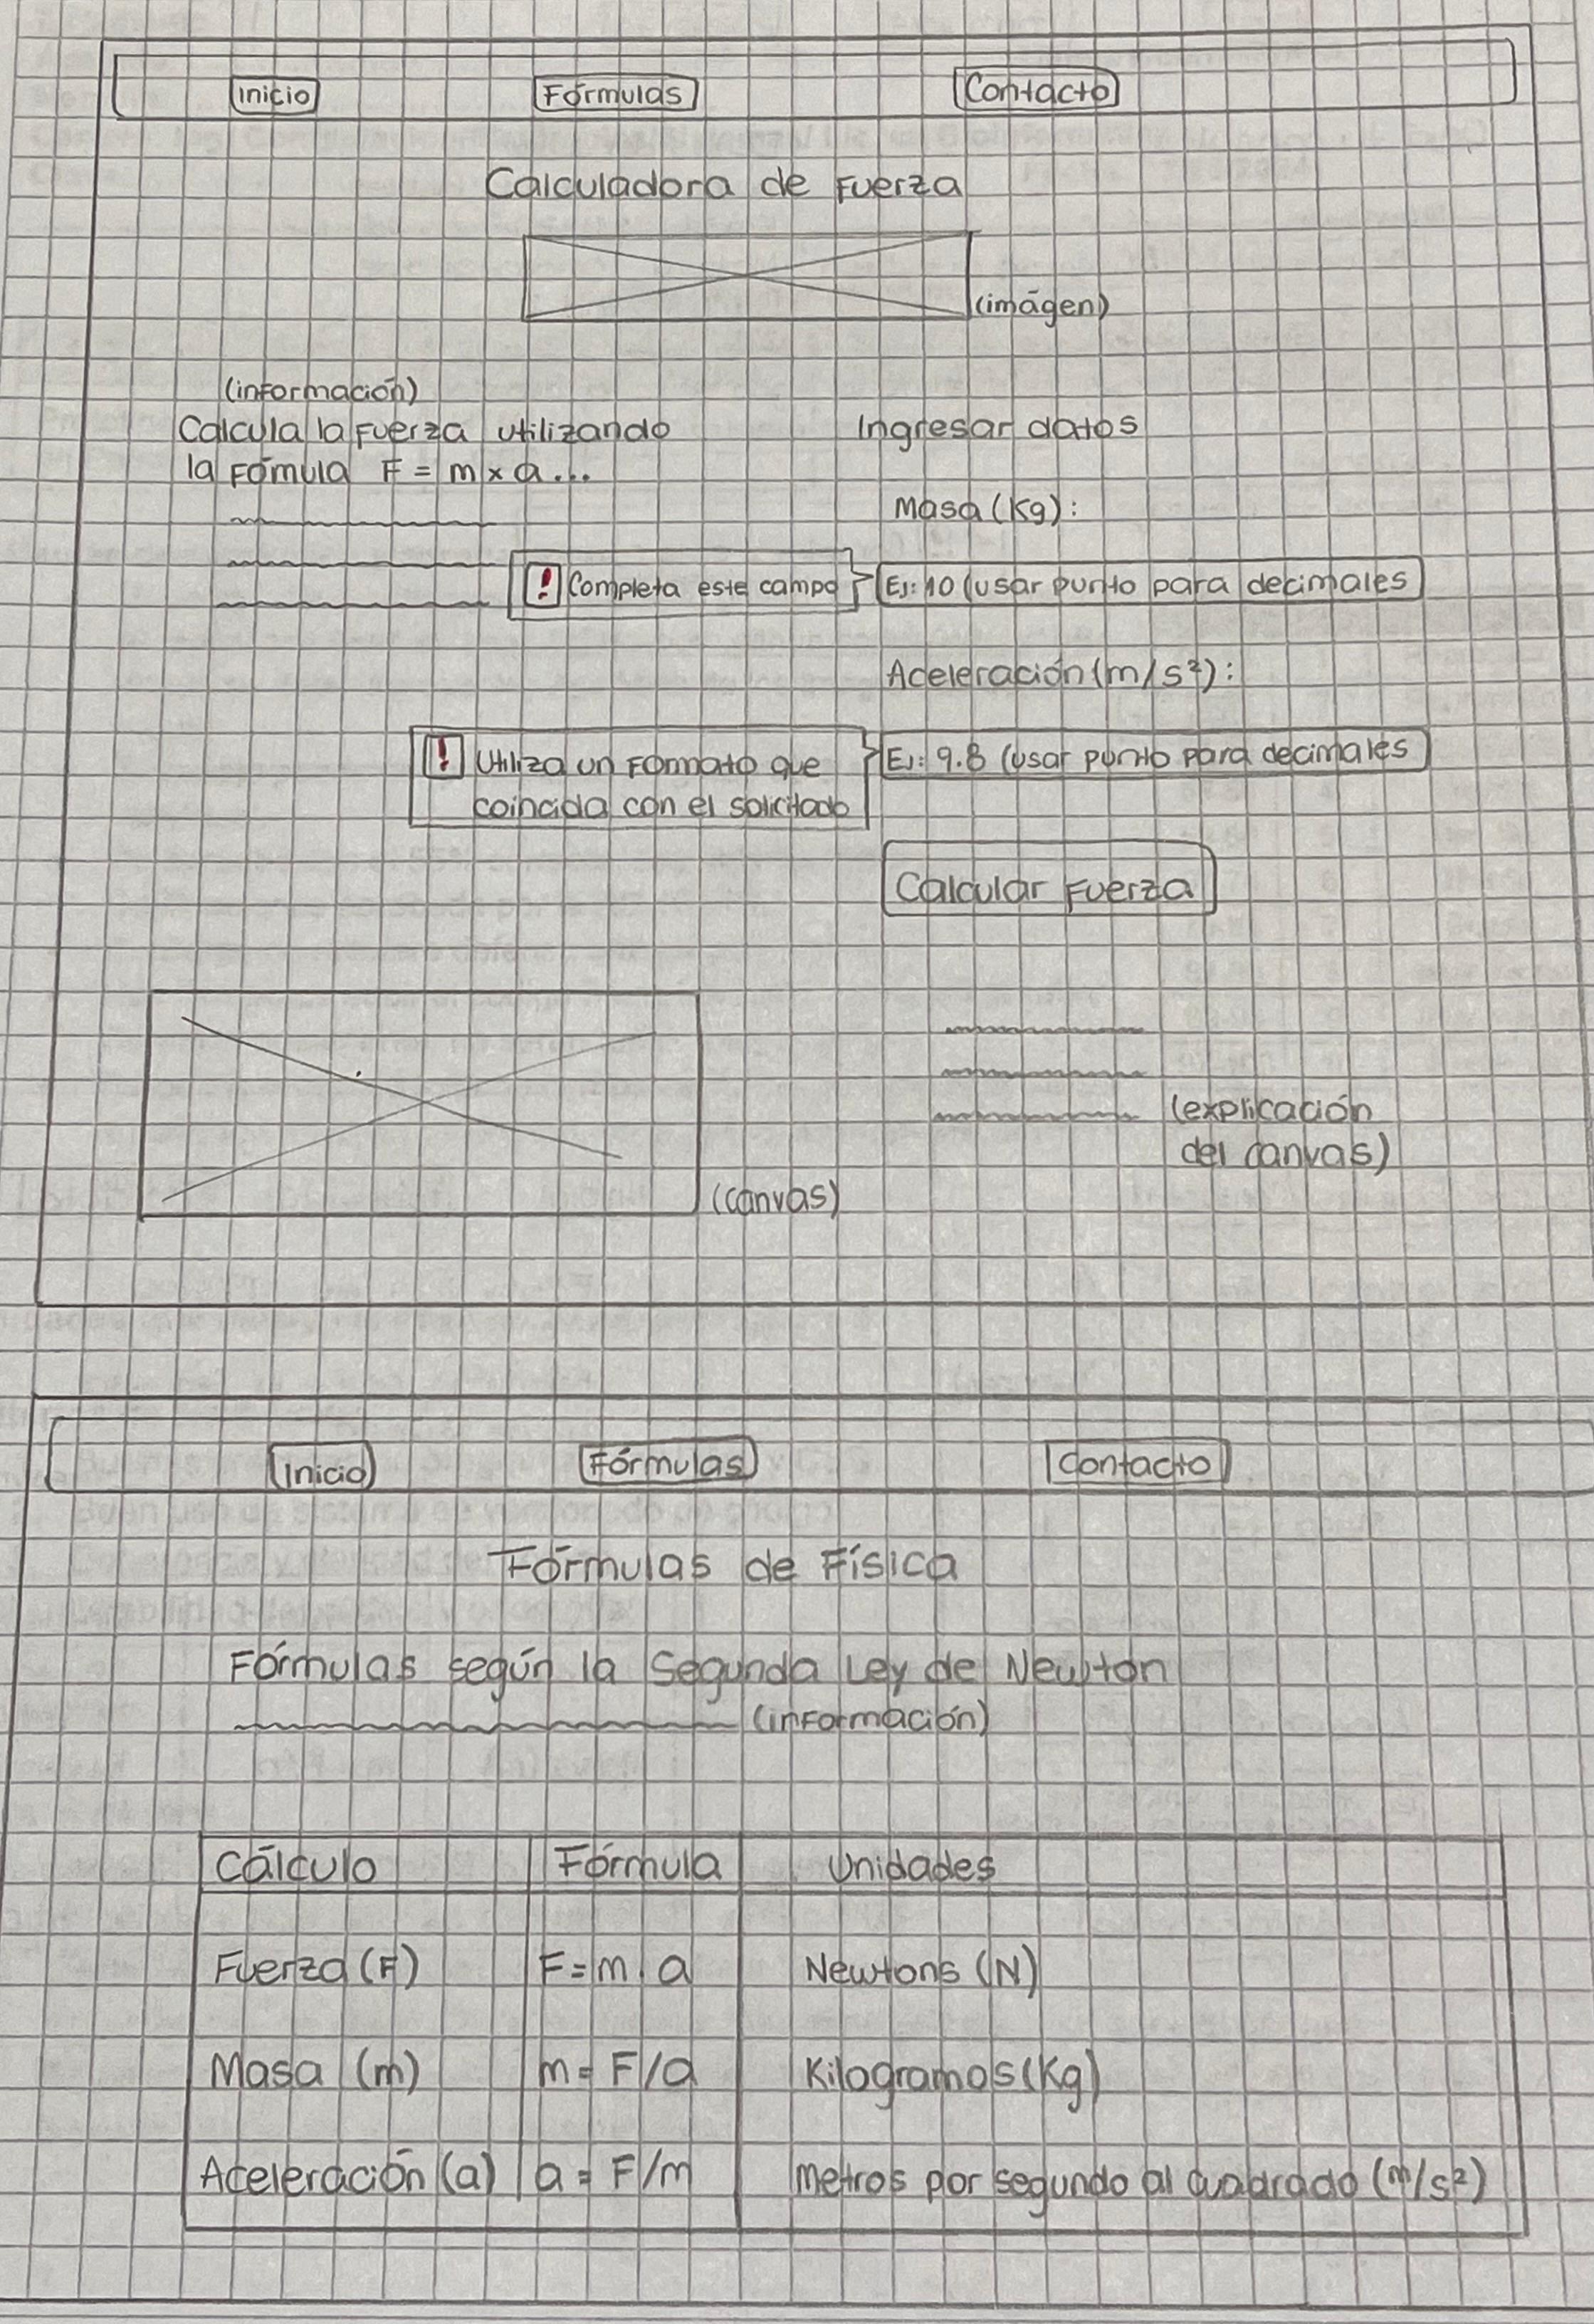 Inicio Fórmulas Contacto
Calculadora de Fuerza
(imágen)
(información)
Calcula la fuerza utilizando
la fómula F = m x a...
Ingresar datos
Masa (Kg):
! Completa este campo
Ej: 10 (usar punto para decimales
Aceleración (m/s²):
! Utiliza un formato que
coincida con el solicitado
Ej: 9.8 (usar punto para decimales
Calcular Fuerza
(explicación
del canvas)
(canvas)
Inicio Fórmulas Contacto
Fórmulas de Física
Fórmulas según la Segunda Ley de Newton
(información)
Cálculo Fórmula Unidades
Fuerza (F) F = m . a Newtons (N)
Masa (m) m = F/a Kilogramos (Kg)
Aceleración (a) a = F/m metros por segundo al cuadrado (m/s²)